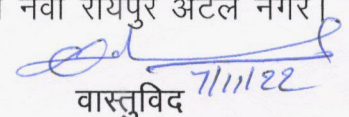 नवा रायपुर अटल नगर।
7/11/22
वास्तुविद